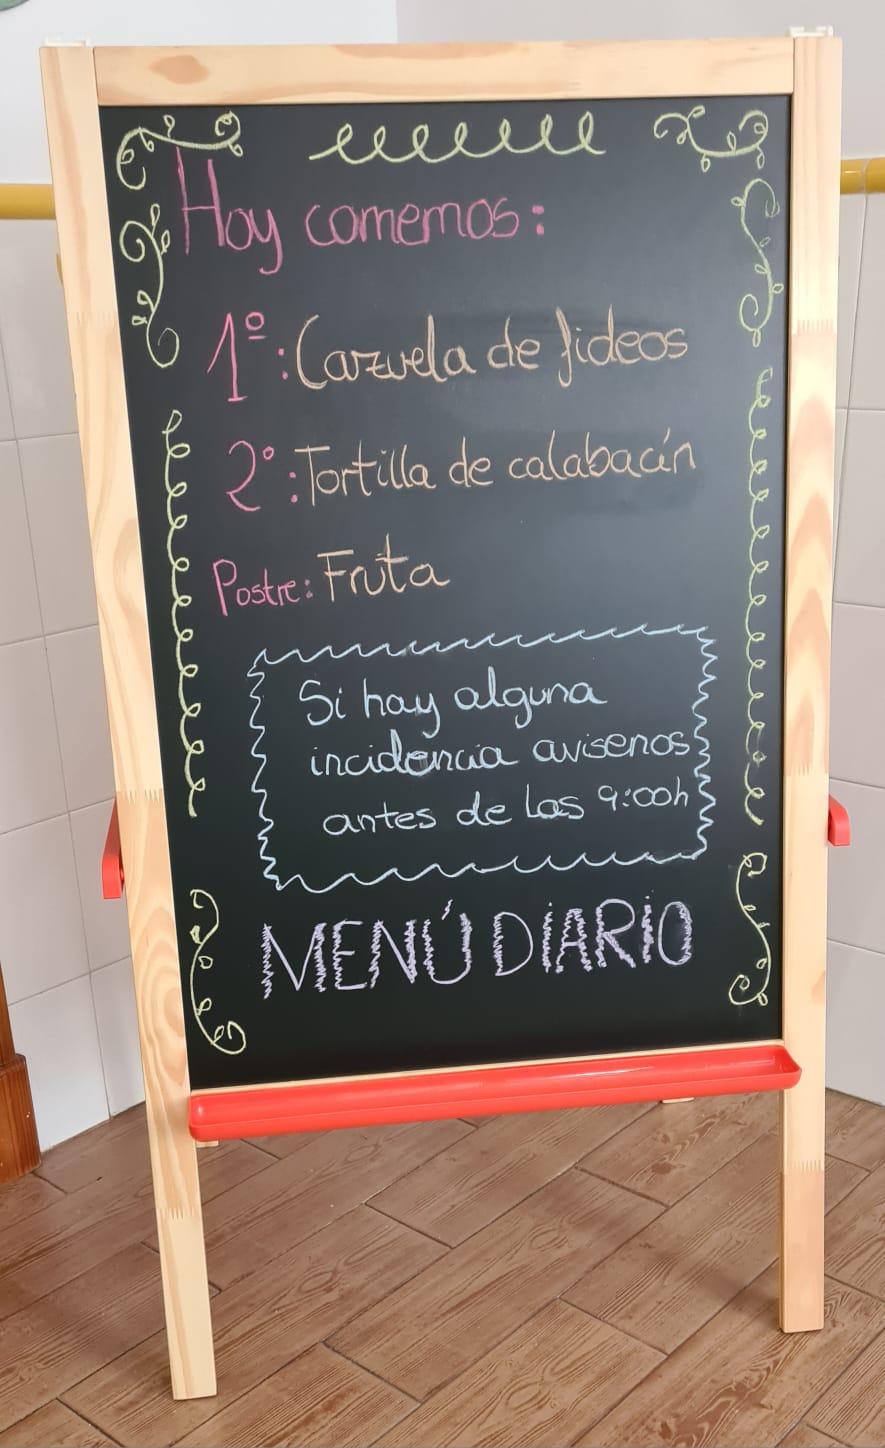 Hoy comemos:
1º: Cazuela de fideos
2º: Tortilla de calabacín
Postre: Fruta
Si hay alguna
incidencia avisenos
antes de las 9:00h
MENÚ DIARIO